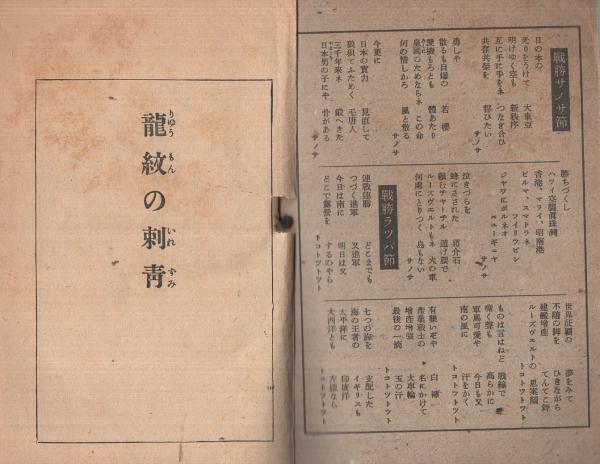 戦勝サノサ節
日の本の
光りをうけて 大東亜
明けゆく空も 新秩序
互に手に手をネ つなぎ合ひ
共存共榮を 誓ひたい
サノサ
勇しや
散るも自爆の 若櫻
愛機もろとも 體あたり
皇國のためならネ この命
何の惜しかろ 風と散る
サノサ
今更に
日本の實力 見直して
狼狽てふためく 毛唐人
三千年来ネ 鍛へきた
日本男の子にや 骨がある
サノサ
勝ちづくし
ハワイ空襲眞珠灣
香港、マライ、昭南港
ビルマ、スマトラネ フイリツピン
ジヤワにボルネオ ニユーギニヤ
サノサ
泣きづらを
蜂にさされた 蔣介石
頼むチヤーチル 逃げ腰で
ルーズヴエルトもネ 火の車
何處にとりつく 島もない
サノサ
戦勝ラツパ節
連戦連勝 どこまでも
つづく進軍 又進軍
今日は南に 明日は又
どこで露營を するのやら
トコトツトツト
世界征覇の 夢をみて
不隨の脚を ひきながら
建艦増産 てんてこ舞
ルーズヴエルトの 思案顔
トコトツトツト
ものは言はねど 戦線で
嘶く聲も 高らかに
軍馬可愛や 今日も又
南の風に 汗をかく
トコトツトツト
有難いぞや 白襷
産業戦士の 名にかけて
増産増強 大車輪
最後の一滴 玉の汗
トコトツトツト
七つの海を 支配した
海の王者の イギリスも
太平洋に 印度洋
大西洋とも 左様なら
トコトツトツト
龍紋の刺青
りゆう もん いれ ずみ